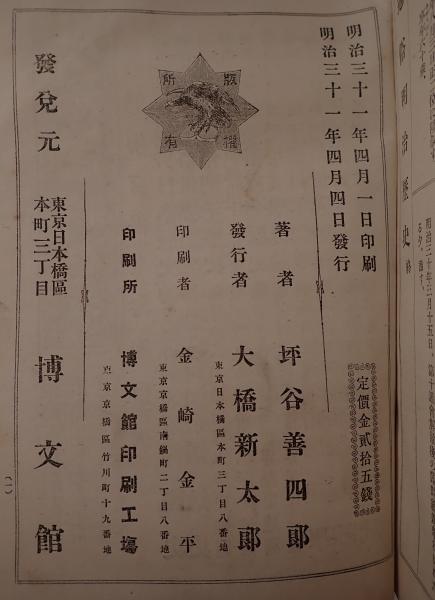 明治三十一年四月一日印刷
明治三十一年四月四日發行
定價金貳拾五錢
版權所有
著者 坪谷善四郎
發行者 大橋新太郎
東京日本橋區本町三丁目八番地
印刷者 金崎金平
東京京橋區南鍋町二丁目八番地
印刷所 博文館印刷工塲
東京京橋區竹川町十九番地
發兌元 東京日本橋區本町三丁目 博文館
(一)
明治歷史